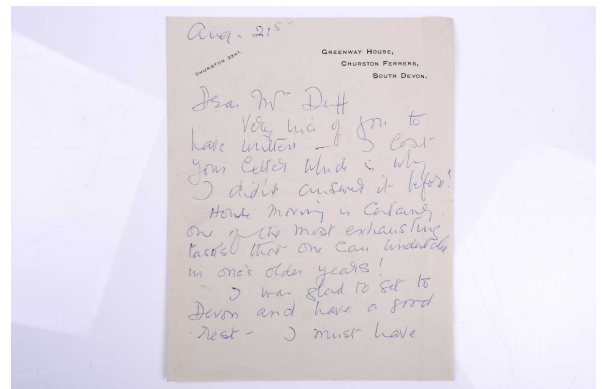 Aug. 21st
CHURSTON 2267.
GREENWAY HOUSE,
CHURSTON FERRERS,
SOUTH DEVON.
Dear Mr Duff
Very nice of you to
have written - I lost
your letter which is why
I didn't answer it before!
House moving is certainly
one of the most exhausting
tasks that one can undertake
in one's older years!
I was glad to get to
Devon and have a good
rest - I must have